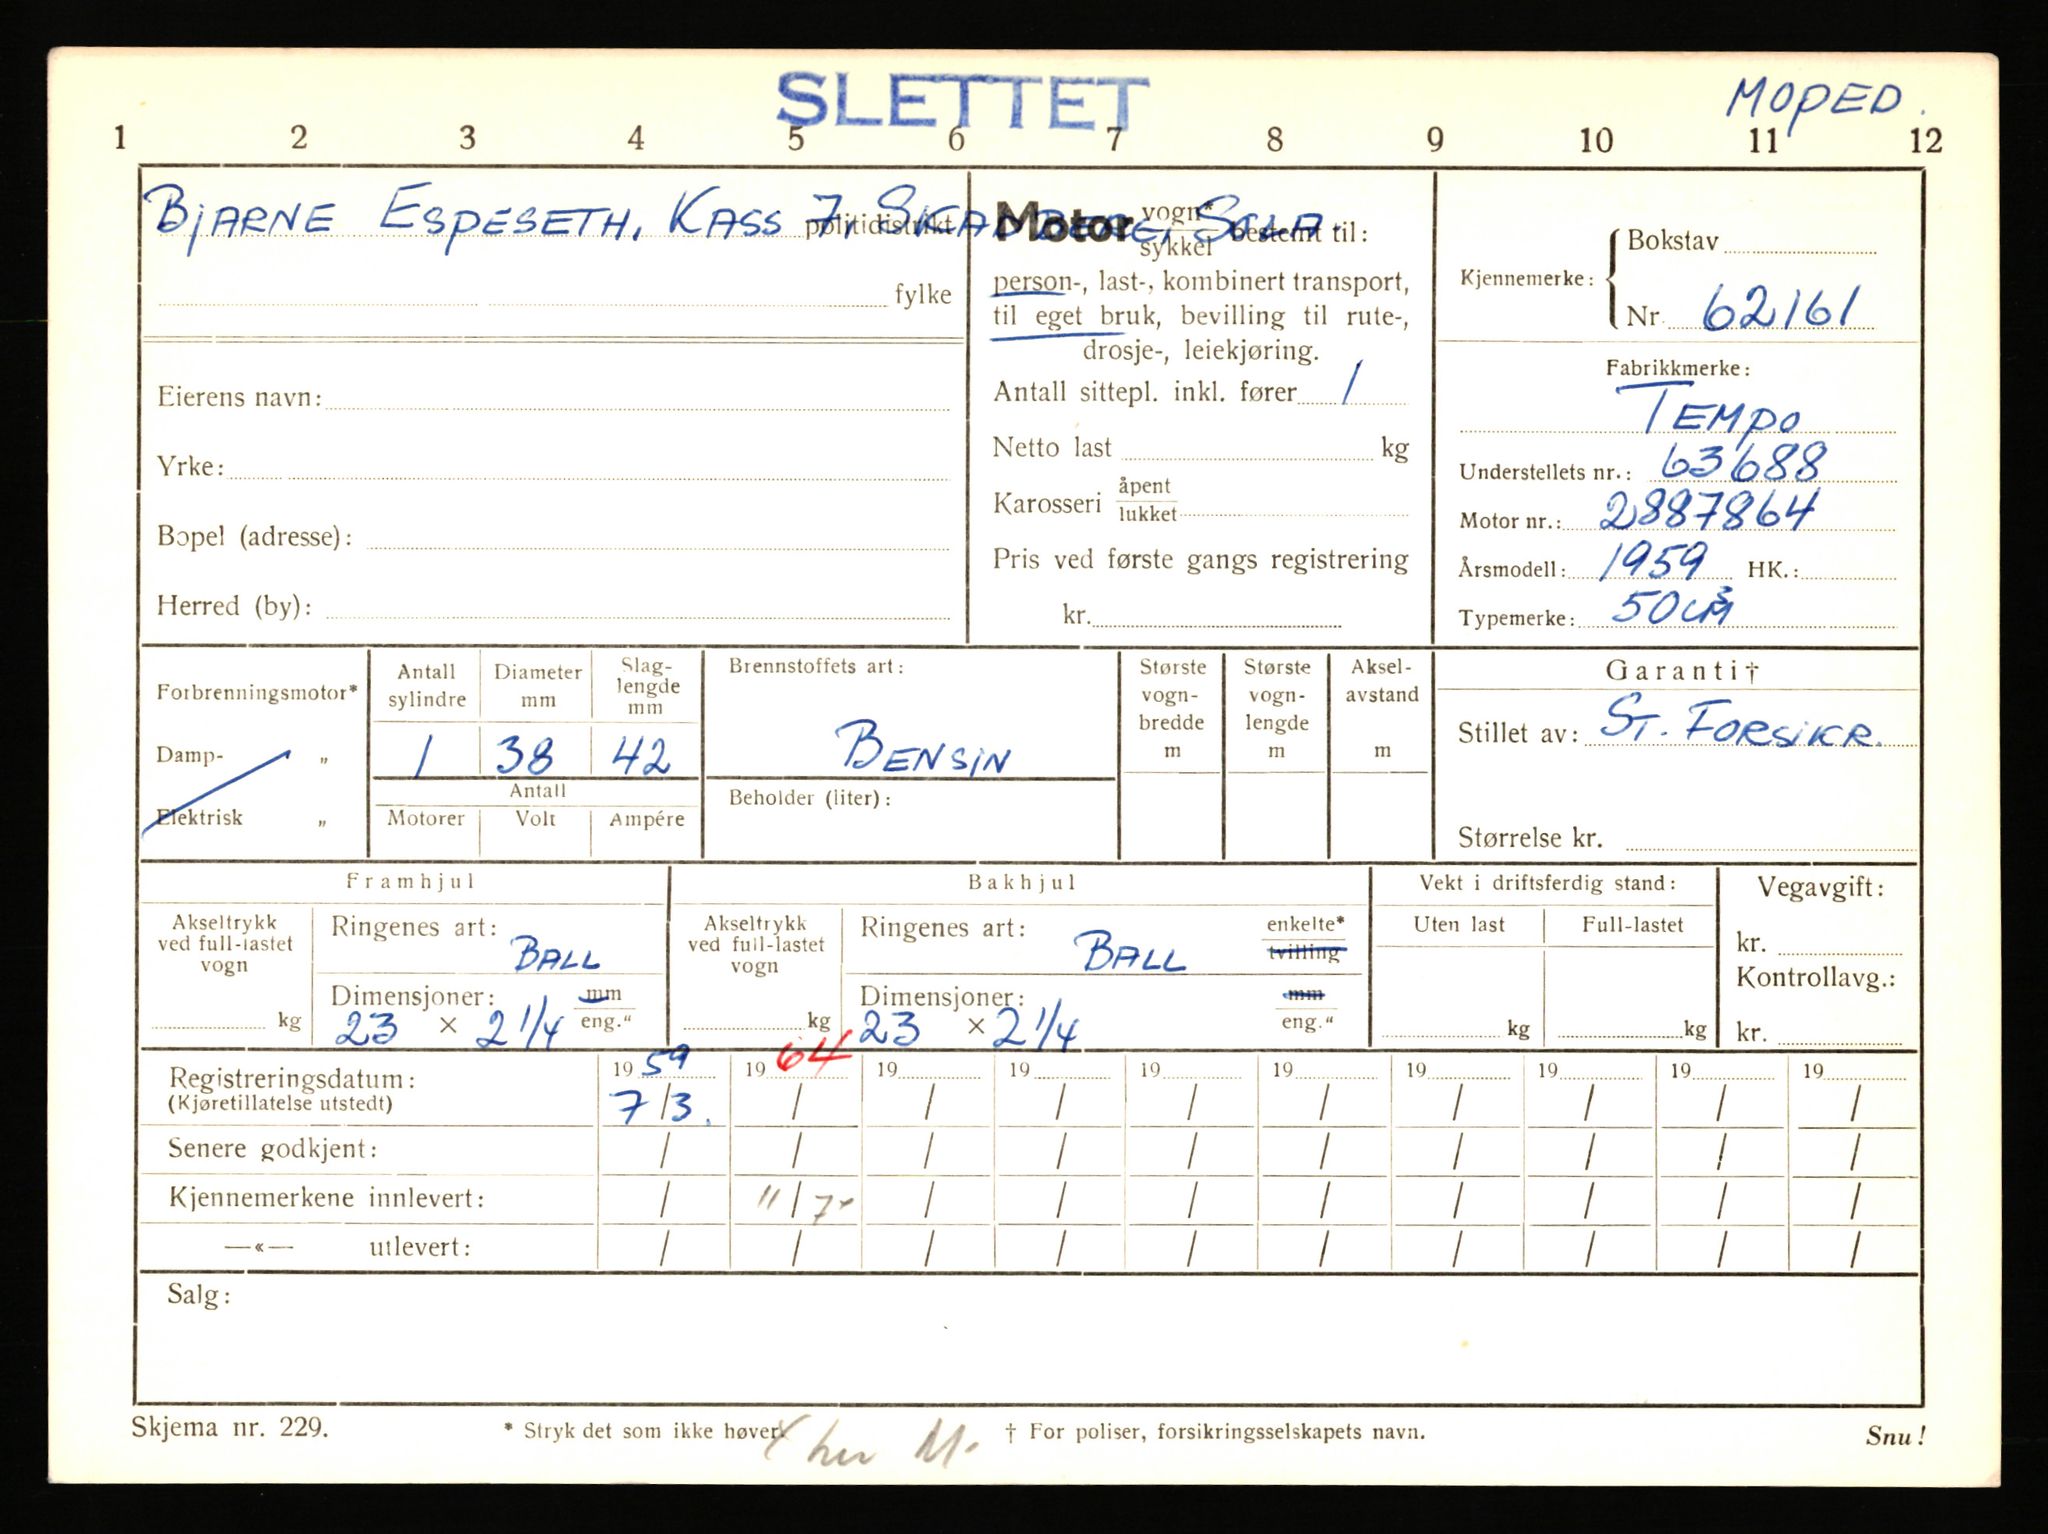 SLETTET
MOPED.
1 2 3 4 5 6 7 8 9 10 11 12
BJARNE ESPESETH, KASS 7, SKADBERG, SOLA.
politidistrikt
fylke
Eierens navn:
Yrke:
Bopel (adresse):
Herred (by):
Motor vogn* sykkel bestemt til:
person-, last-, kombinert transport,
til eget bruk, bevilling til rute-,
drosje-, leiekjøring.
Antall sittepl. inkl. fører 1
Netto last kg
Karosseri åpent lukket
Pris ved første gangs registrering
kr.
Kjennemerke: Bokstav
Nr 62161
Fabrikkmerke:
TEMPO
Understellets nr.: 63688
Motor nr.: 2887864
Årsmodell: 1959 HK.:
Typemerke: 50 cm³
Forbrenningsmotor*
Damp- „
Elektrisk „
Antall sylindre
Diameter mm
Slag-lengde mm
1 38 42
Antall
Motorer Volt Ampére
Brennstoffets art:
BENSIN
Beholder (liter):
Største vogn-bredde m
Største vogn-lengde m
Aksel-avstand m
Garanti†
Stillet av: ST. FORSIKR.
Størrelse kr.
Framhjul
Akseltrykk ved full-lastet vogn
kg
Ringenes art: BALL
Dimensjoner: mm eng."
23 x 2 1/4
Bakhjul
Akseltrykk ved full-lastet vogn
kg
Ringenes art: BALL enkelte* tvilling
Dimensjoner: mm eng."
23 x 2 1/4
Vekt i driftsferdig stand:
Uten last Full-lastet
kg kg
Vegavgift:
kr.
Kontrollavg.:
kr.
19 59 19 64 19 19 19 19 19 19 19 19
Registreringsdatum: 7/3. / / / / / / / / /
(Kjøretillatelse utstedt)
Senere godkjent: / / / / / / / / / /
Kjennemerkene innlevert: / 11/7- / / / / / / / /
—«— utlevert: / / / / / / / / / /
Salg:
Skjema nr. 229.
* Stryk det som ikke høver.
† For poliser, forsikringsselskapets navn.
Snu!